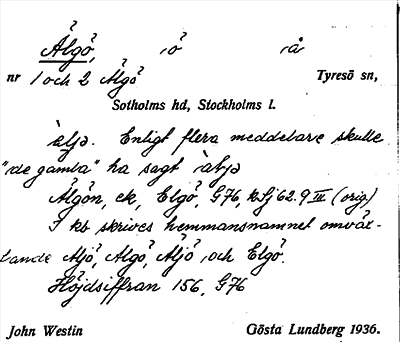 Älgö, ö å
nr 1 och 2 Älgö Tyresö sn,
Sotholms hd, Stockholms l.
àljə. Enligt flera meddelare skulle
"de gamla" ha sagt
Älgön, ek, Elgö, G76, kSj 62.9 III (orig)
I kb skrives hemmansnamnet omväx-
lande Aljö, Älgö, Äljö och Elgö.
Höjdsiffran 156, G76
John Westin Gösta Lundberg 1936.